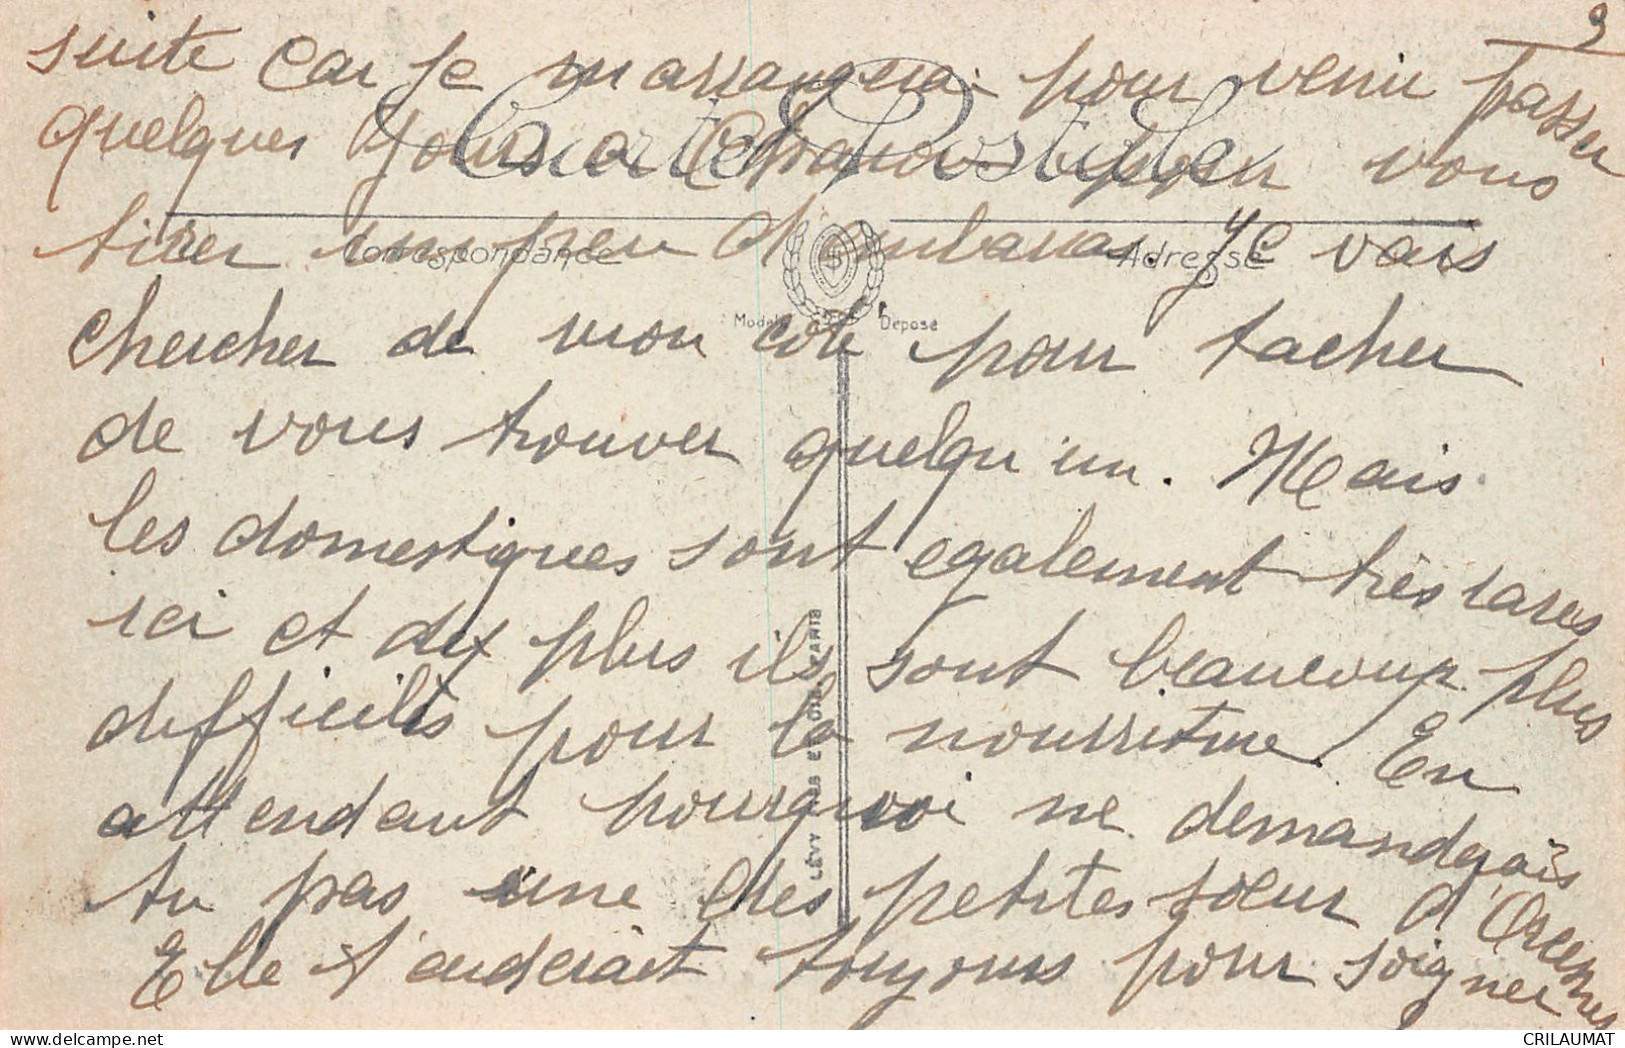 3
suite car je m arrangerai pour venir passer
Carte Postale
quelques jours a pour vous
tirer un peu d embarras. Je vais
Correspondance
Adresse
Modèle Déposé
chercher de mon coté pour tacher
de vous trouver quelqu'un. Mais
les domestiques sont egalement très rares
ici et de plus ils sont beaucoup plus
difficiles pour la nourriture. En
attendant pourquoi ne demandais
tu pas une des petites soeur d'
Elle t'aiderait toujours pour soigner
LÉVY FILS ET CIE, PARIS
CRILAUMAT